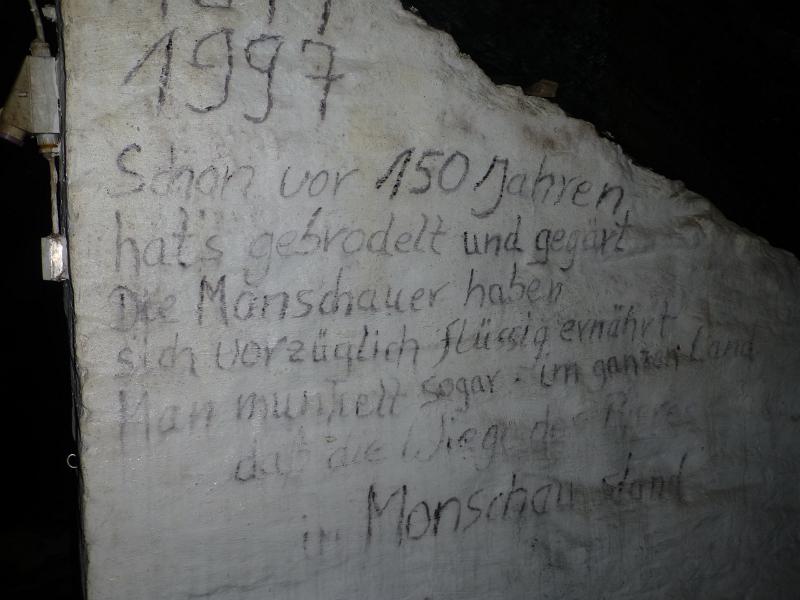 1997
Schon vor 150 Jahren
hat's gebrodelt und gegärt
Die Monschauer haben
sich vorzüglich flüssig ernährt
Man munkelt sogar im ganzen Land
daß die Wiege des Bieres
in Monschau stand